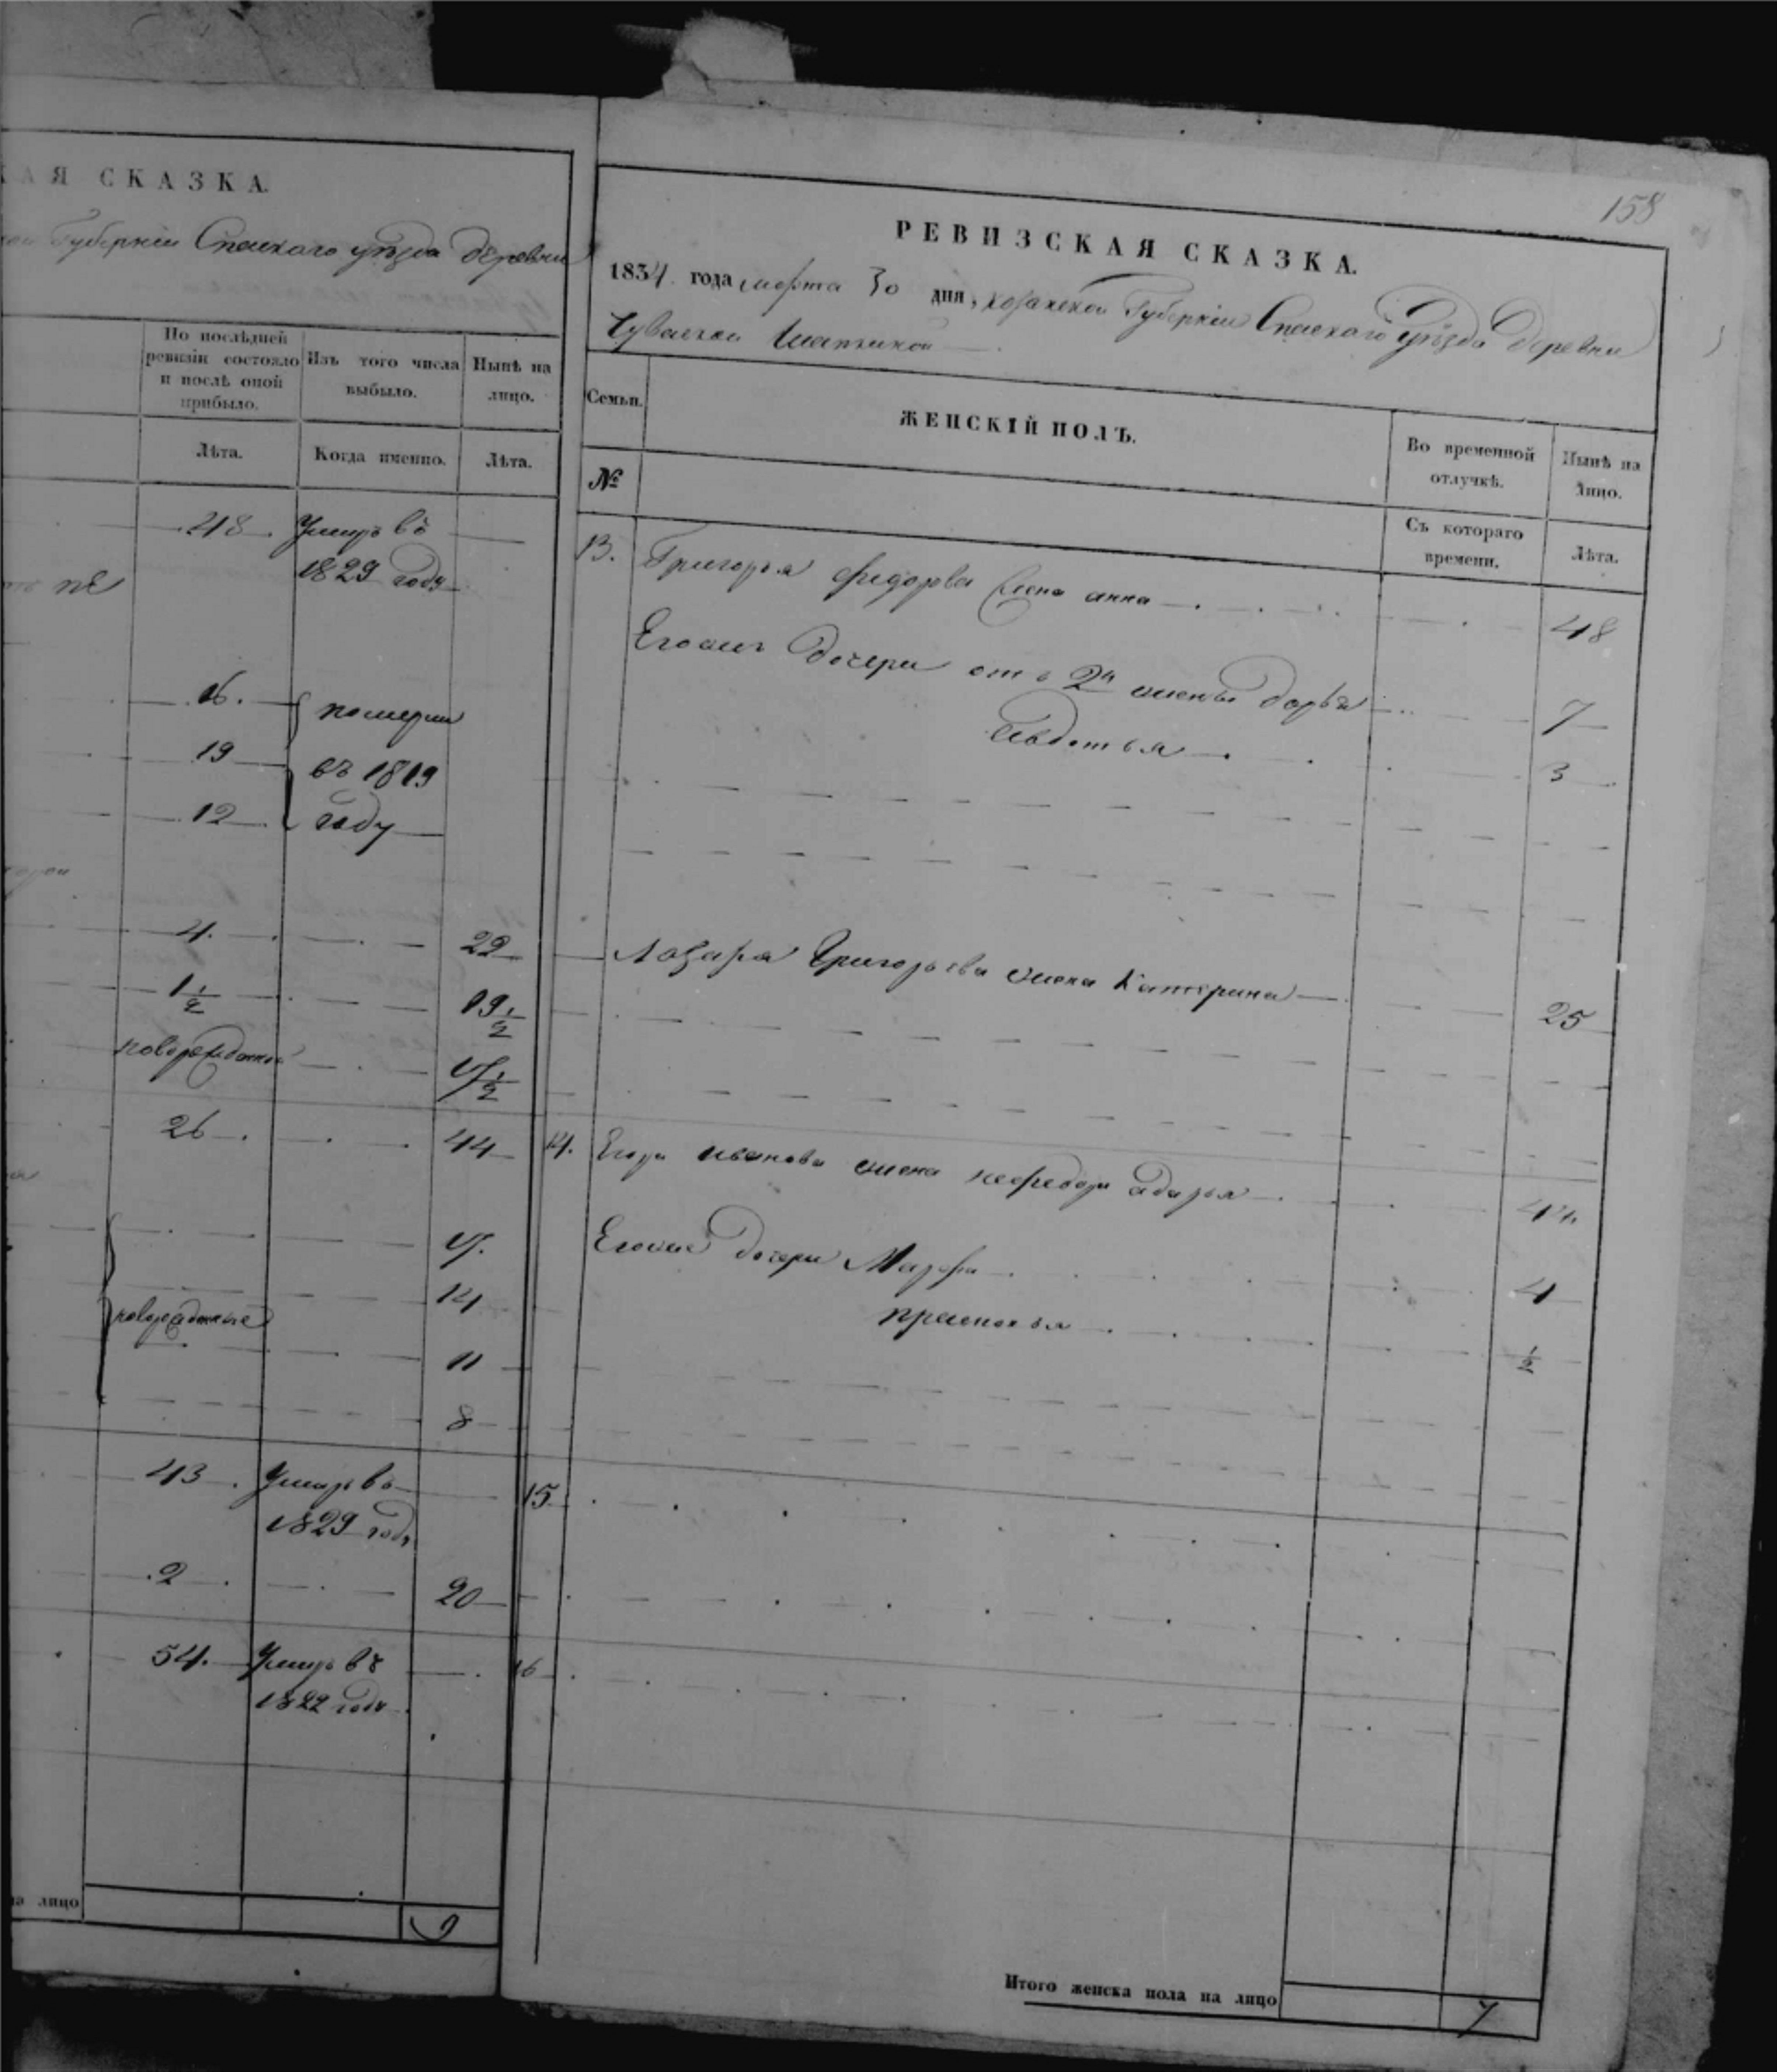 КАЯ СКАЗКА.
Губерніи Спаскаго уѣзда деревни
По послѣдней
ревизіи состояло
и послѣ оной
прибыло.
Изъ того числа
выбыло.
Нынѣ на
лицо.
Лѣта.
Когда именно.
Лѣта.
48. Умеръ въ
1829 году
16. померли
19 въ 1819
12 году
4. 22
1 1/2 19 1/2
новорожденной 17 1/2
26 44
17.
14
новорожденные
11
8
43 Умеръ въ
1829 году
2 20
54. Умеръ въ
1822 году
на лицо
9
158
РЕВИЗСКАЯ СКАЗКА.
1834 года марта 30 дня, казанской Губерніи Спаскаго Уѣзда Деревни
Чуваской
Семьи.
ЖЕНСКІЙ ПОЛЪ.
Во временной
отлучкѣ.
Нынѣ на
лицо.
№
Съ котораго
времени.
Лѣта.
13. Григорья федорова жена анна 48
Егожъ дочери отъ 2й жены дарья 7
Авдотья 3
Лазаря Григорьева жена Катерина 25
14. Егора иванова жена дарья 44.
Егоже дочери Марфа 4
прасковья 1/2
15
16
Итого женска пола на лицо 7